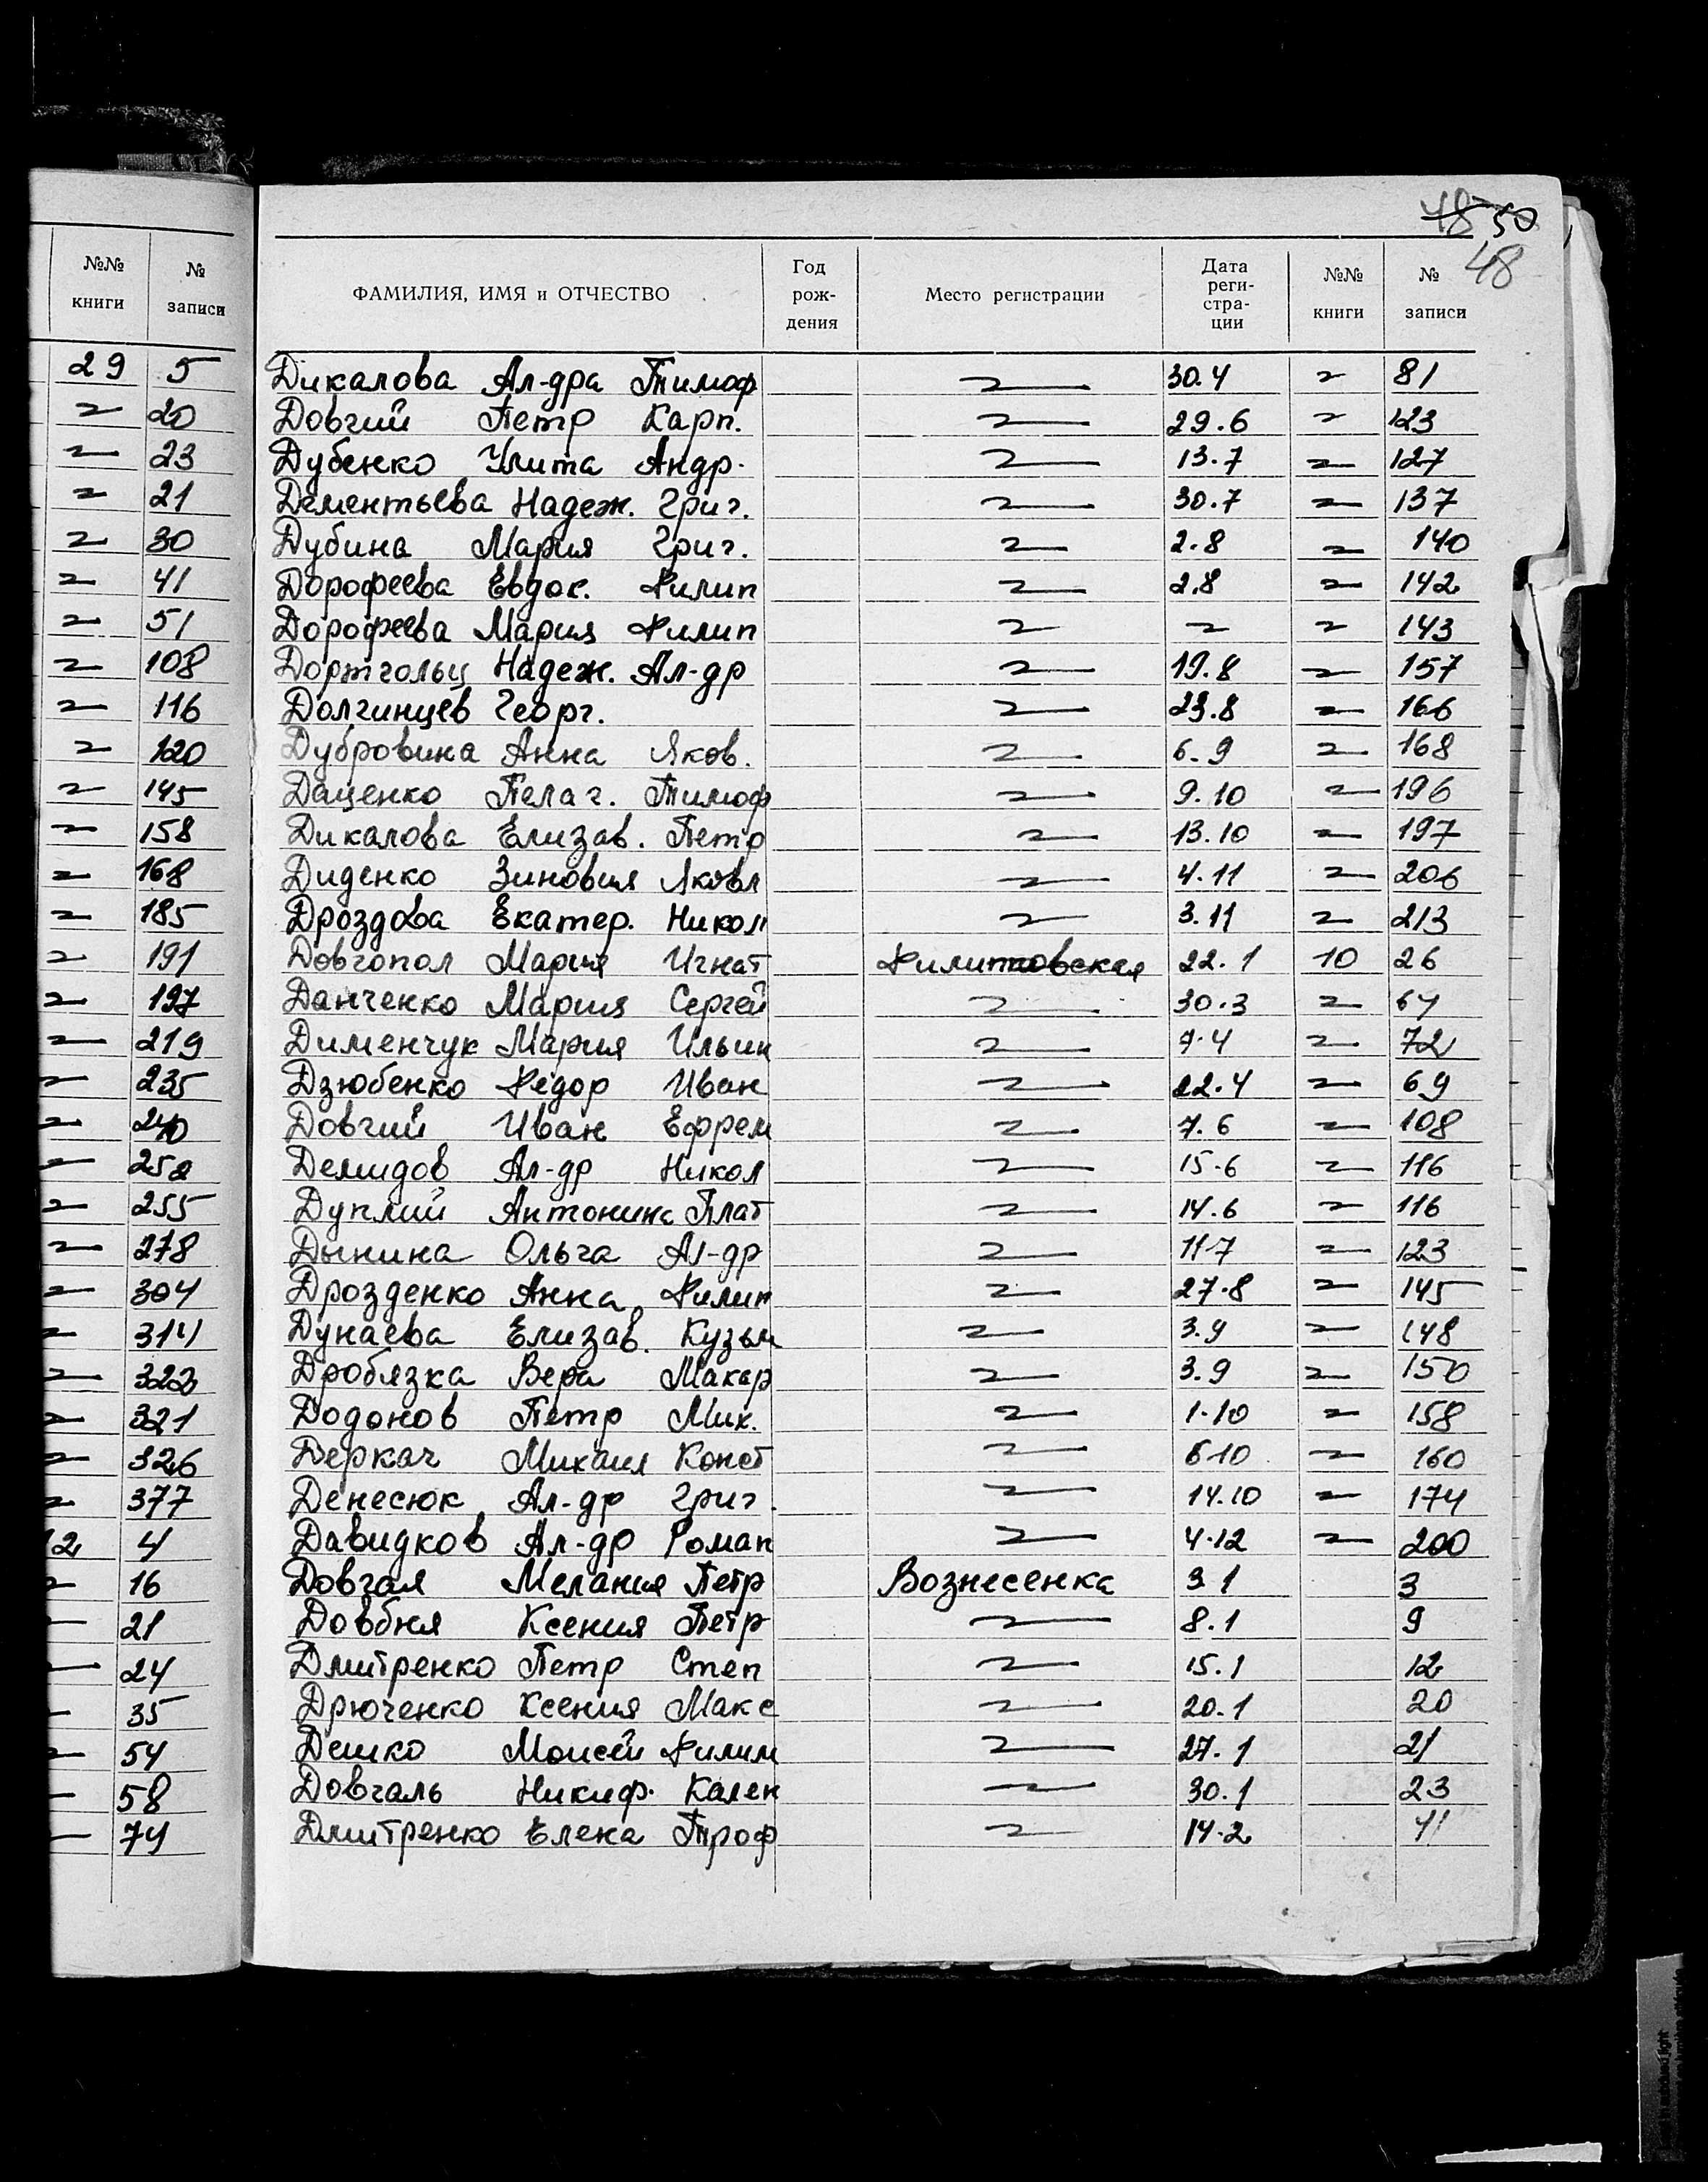 48 50
48
№№ книги
№ записи
ФАМИЛИЯ, ИМЯ и ОТЧЕСТВО
Год рож-дения
Место регистрации
Дата реги-стра-ции
№№ книги
№ записи
29 5 Дикалова Ал-дра Тимоф 〃 30.4 〃 81
〃 20 Довгий Петр Карп. 〃 29.6 〃 123
〃 23 Дубенко Улита Андр. 〃 13.7 〃 127
〃 21 Дементьева Надеж. Григ. 〃 30.7 〃 137
〃 30 Дубина Мария Григ. 〃 2.8 〃 140
〃 41 Дорофеева Евдок. Филип 〃 2.8 〃 142
〃 51 Дорофеева Мария Филип 〃 〃 〃 143
〃 108 Дортгольц Надеж. Ал-др 〃 19.8 〃 157
〃 116 Долгинцев Георг. 〃 23.8 〃 166
〃 120 Дубровина Анна Яков. 〃 6.9 〃 168
〃 145 Даценко Пелаг. Тимоф 〃 9.10 〃 196
〃 158 Дикалова Елизав. Петр 〃 13.10 〃 197
〃 168 Диденко Зиновия Яковл 〃 4.11 〃 206
〃 185 Дроздова Екатер. Никол 〃 3.11 〃 213
〃 191 Довгопол Мария Игнат Филипповская 22.1 10 26
〃 197 Данченко Мария Сергей 〃 30.3 〃 67
〃 219 Дименчук Мария Ильин 〃 7.4 〃 72
〃 235 Дзюбенко Федор Иван 〃 22.4 〃 69
〃 240 Довгий Иван Ефрем 〃 7.6 〃 108
〃 252 Демидов Ал-др Никол 〃 15.6 〃 116
〃 255 Дуплий Антонина Плат 〃 14.6 〃 116
〃 278 Дынина Ольга Ал-др 〃 11.7 〃 123
〃 304 Дрозденко Анна Филип 〃 27.8 〃 145
〃 314 Дунаева Елизав. Кузьм 〃 3.9 〃 148
〃 322 Дроблязка Вера Макар 〃 3.9 〃 150
〃 321 Додонов Петр Мих. 〃 1.10 〃 158
〃 326 Деркач Михаил Конст 〃 6.10 〃 160
〃 377 Денесюк Ал-др Григ. 〃 14.10 〃 174
12 4 Давидков Ал-др Роман 〃 4.12 〃 200
〃 16 Довгая Мелания Петр Вознесенка 3.1 3
〃 21 Довбня Ксения Петр 〃 8.1 9
〃 24 Дмитренко Петр Степ 〃 15.1 12
〃 35 Дрюченко Ксения Макс 〃 20.1 20
〃 54 Дешко Моисей Филим 〃 27.1 21
〃 58 Довгаль Никиф. Кален 〃 30.1 23
〃 74 Дмитренко Елена Троф 〃 14.2 41